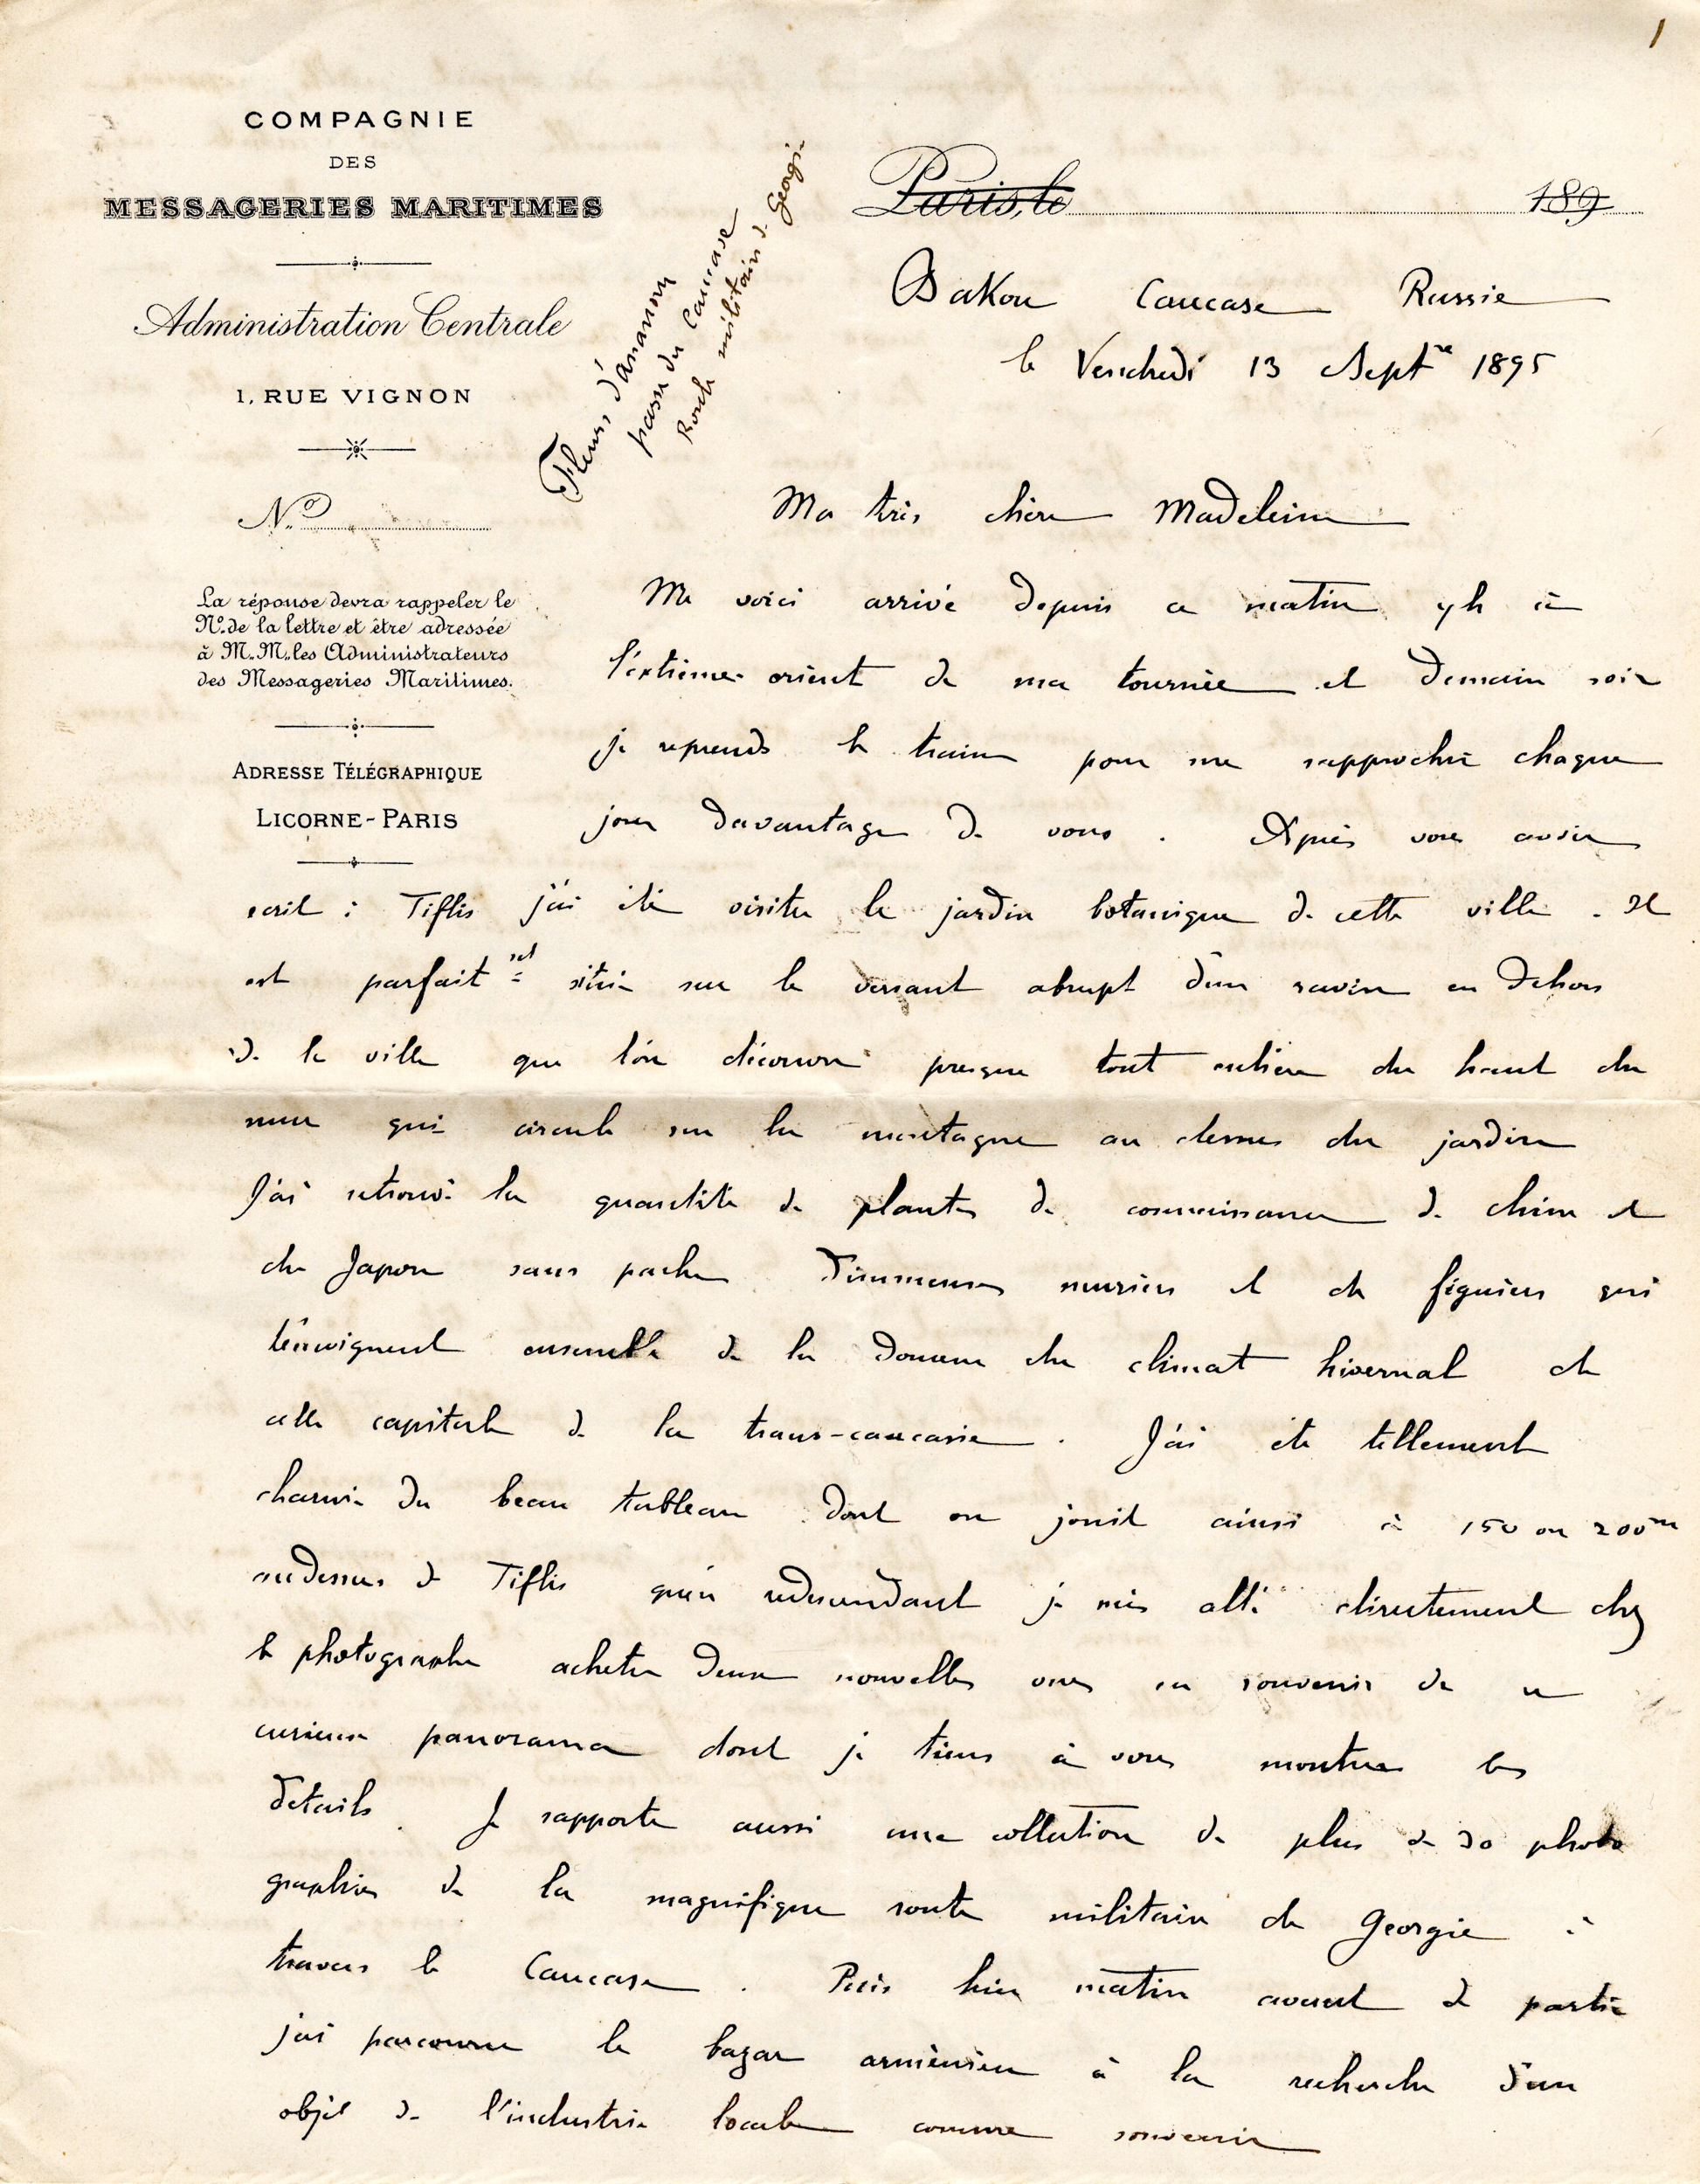 1
COMPAGNIE
DES
MESSAGERIES MARITIMES
Administration Centrale
1, RUE VIGNON
N°
La réponse devra rappeler le
N° de la lettre et être adressée
à M.M. les Administrateurs
des Messageries Maritimes.
ADRESSE TÉLÉGRAPHIQUE
LICORNE-PARIS
Fleurs d'ananour
passe du Caucase
Route militaire de Georgie
Paris, le 189
Bakou Caucase Russie
le Vendredi 13 Septre 1895
Ma très chère Madeleine
Me voici arrivé depuis ce matin 9h à
l'extrême orient de ma tournée et demain soir
je reprends le train pour me rapprocher chaque
jour davantage de vous. Après vous avoir
écrit à Tiflis j'ai été visiter le jardin botanique de cette ville. Il
est parfaitet situé sur le versant abrupt d'un ravin en dehors
de la ville que l'on découvre presque tout entière du haut du
mur qui circule sur la montagne au dessus du jardin
J'ai retrouvé là quantité de plantes de connaissance de chine et
du Japon sans parler d'immenses muriers et de figuiers qui
témoignent ensemble de la douceur du climat hivernal de
cette capitale de la trans-caucasie. J'ai été tellement
charmé du beau tableau dont on jouit ainsi à 150 ou 200m
au dessus de Tiflis qu'en redescendant je suis allé directement chez
le photographe acheter deux nouvelles vues en souvenir de ce
curieux panorama dont je tiens à vous montrer les
détails. Je rapporte aussi une collection de plus de 30 photo
graphies de la magnifique route militaire de Georgie à
travers le Caucase. Puis hier matin avant de partir
j'ai parcouru le bazar arménien à la recherche d'un
objet de l'industrie locale comme souvenir